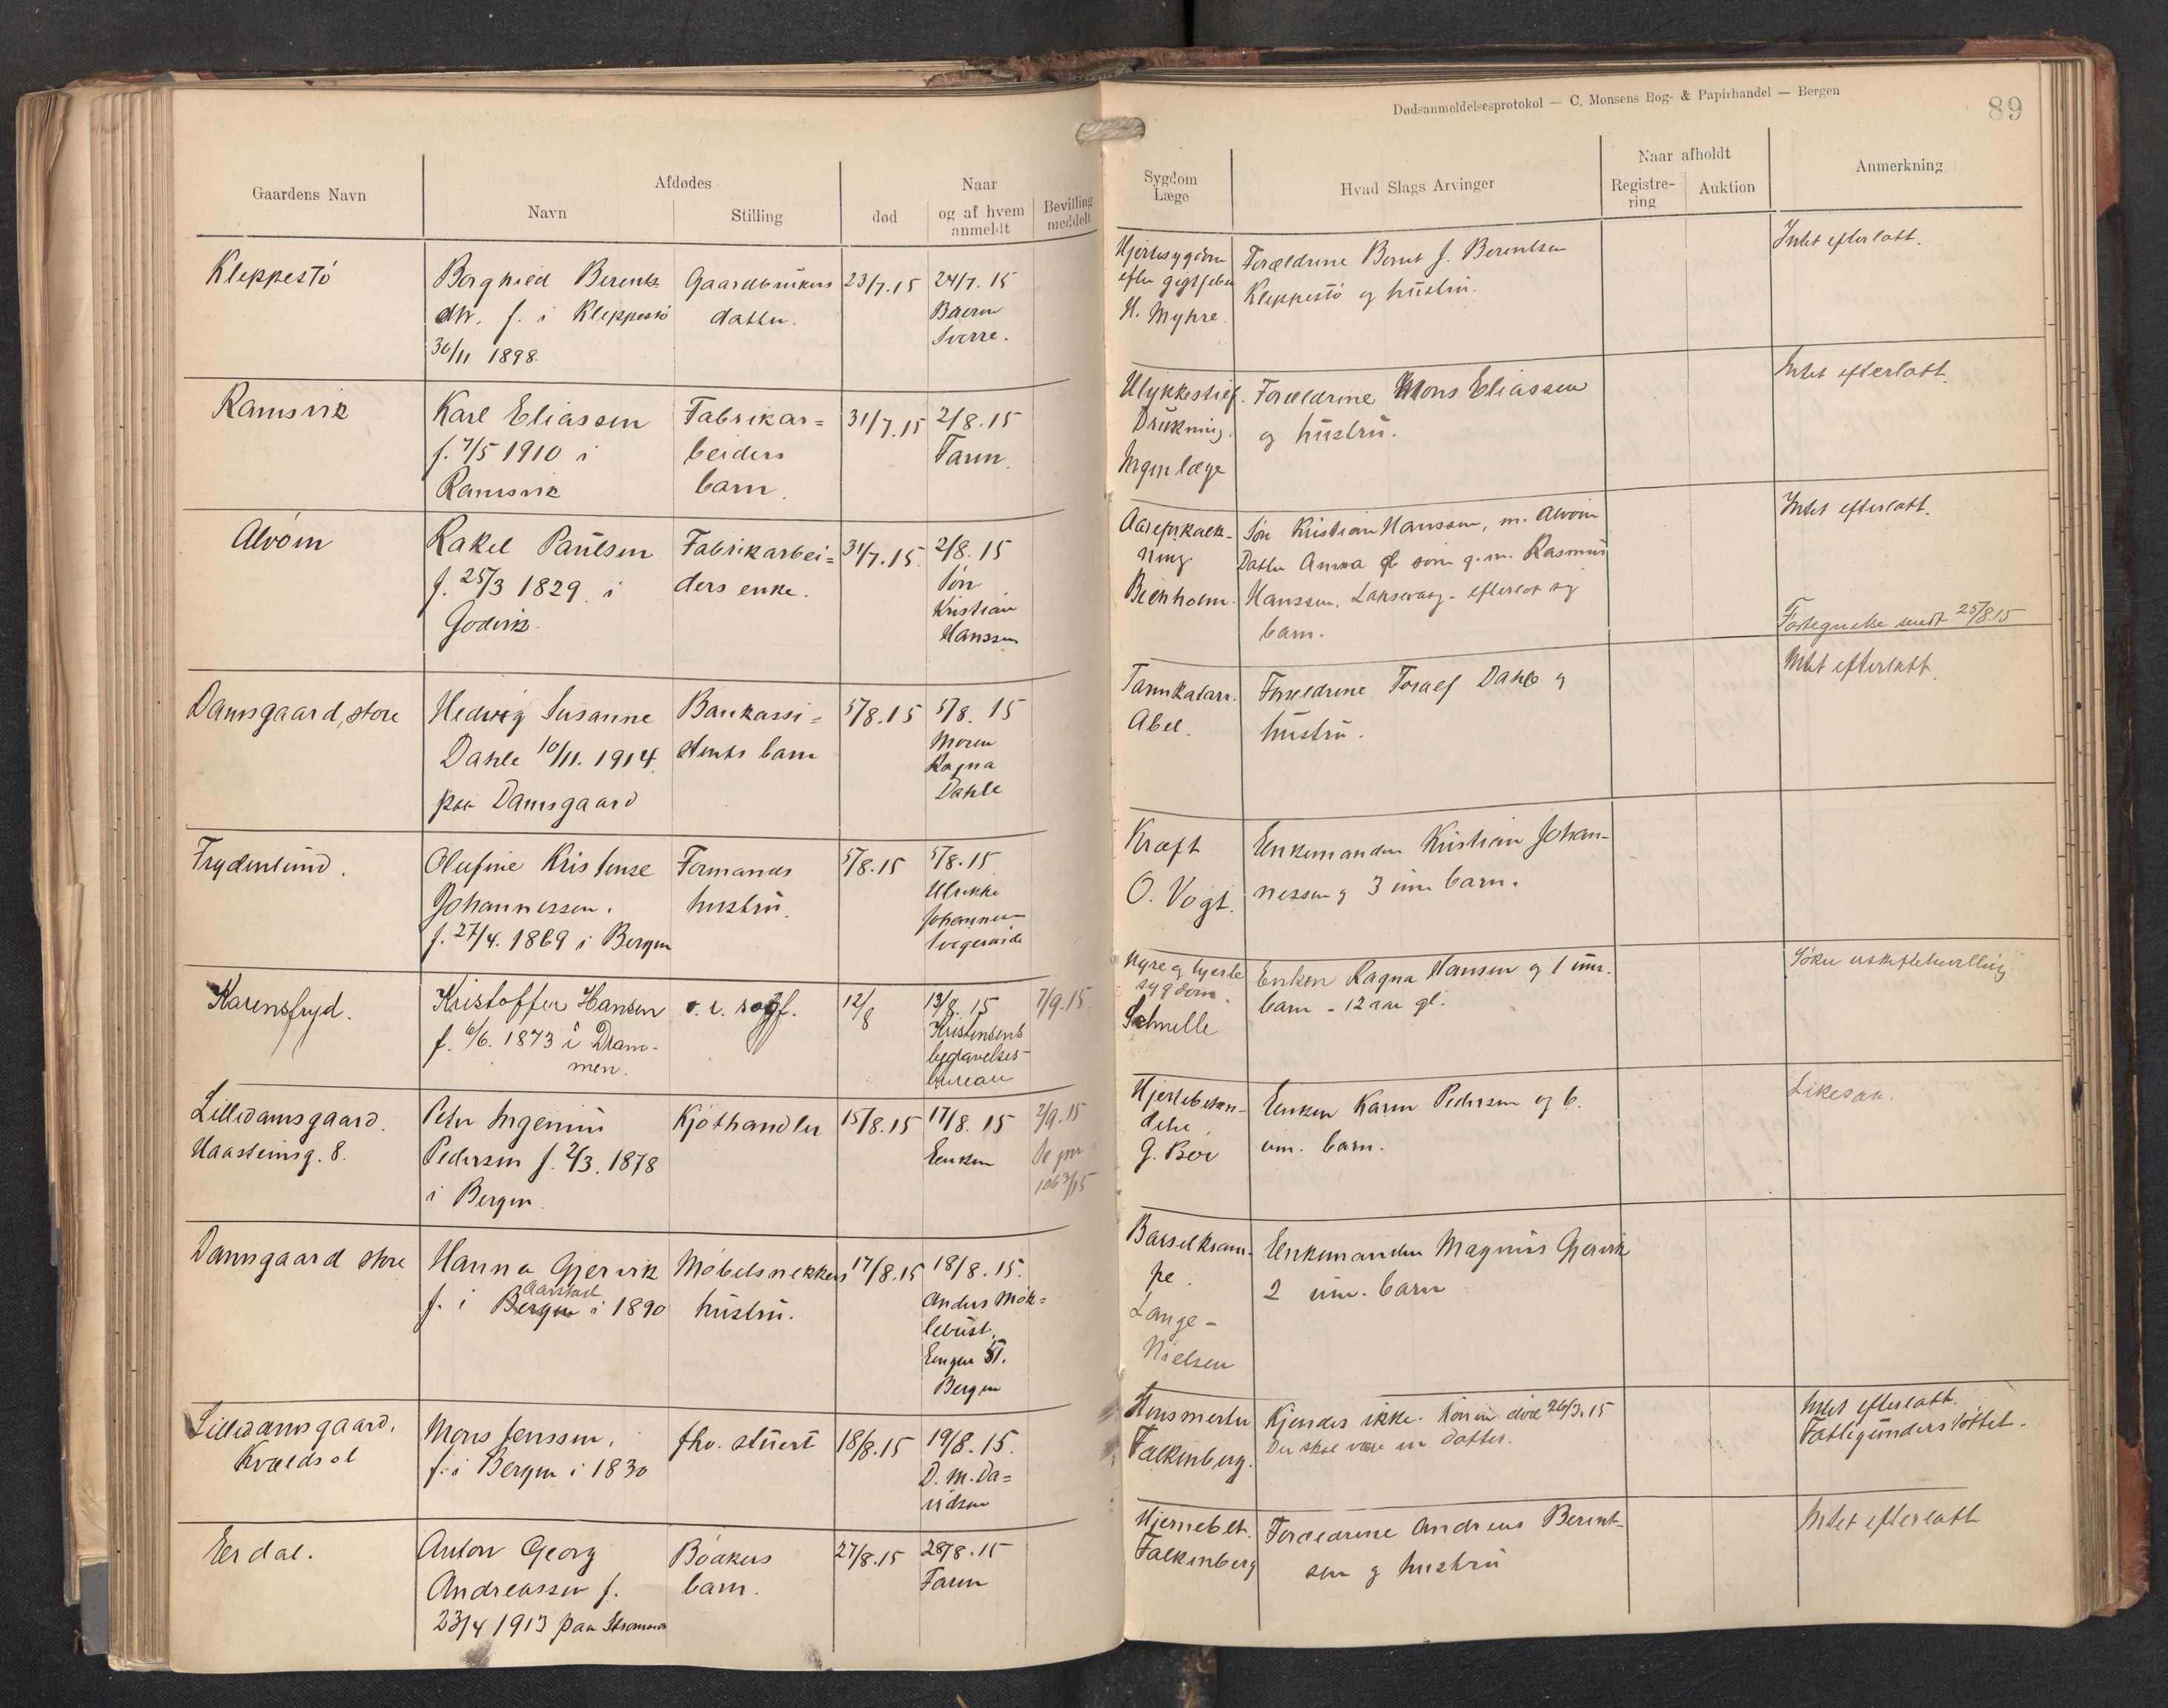 Dødsanmeldelsesprotokol — C. Monsens Bog- & Papirhandel — Bergen
89
Gaardens Navn
Afdødes
Navn
Stilling
død
Naar
og af hvem
anmeldt
Bevilling
meddelt
Sygdom
Læge
Hvad Slags Arvinger
Naar afholdt
Registre-
ring
Auktion
Anmerkning
Kleppestø
Borghild Berents
dtr. f. i Kleppestø
30/11 1898
Gaardbrukers
datter.
23/7.15
24/7.15
Sverre.
Hjertesygdom
efter gigtfeber
H. Myhre.
Forældrene Bernt J. Berentsen
Kleppestø og hustru.
Intet efterlatt.
Ramsvik
Karl Eliassen
f. 7/5 1910 i
Ramsvik
Fabrikar=
beiders
barn.
31/7.15
2/8.15
Faren.
Ulykkestilf.
Drukning.
Ingen læge
Forældrene Mons Eliassen
og hustru.
Intet efterlatt.
Alvøen
Rakel Paulsen
f. 25/3 1829 i
Godvik.
Fabrikarbei=
ders enke.
31/7.15.
2/8.15
Søn
Kristian
Hanssen
Aareforkalk-
ning
Søn Kristian Hanssen, m. Alvøen
Datter Anna som g.m. Rasmus
Hanssen, Laksevaag - efterlot sig
barn.
Intet efterlatt.
Fortegnelse sendt 25/8.15
Damsgaard, store
Hedvig Susanne
Dahle 10/11. 1914.
paa Damsgaard
Bankassi=
stents barn
5/8.15
5/8.15
Moren
Ragna
Dahle
Tarmkatarr.
Abel.
Forældrene Toralf Dahle og
hustru.
Intet efterlatt.
Frydenlund.
Olufine Kristense
Johannessen.
f. 27/4. 1869 i Bergen
Formands
hustru.
5/8.15
5/8.15.
Ulrikke
Johannesen
Kræft
O. Vogt.
Enkemanden Kristian Johan-
nessen og 3 um. barn.
Karensfryd.
Kristoffer Hansen
f. 6/6. 1873 i Dram-
men.
12/8
13/8.15
Kristensens
begravelses-
bureau
7/9.15.
Nyre og hjerte
sygdom.
Schnelle
Enken Ragna Hansen og 1 um.
barn - 12 aar gl.
Søker uskiftebevilling
Lilledamsgaard.
Haasteinsg. 8.
Peter Ingenius
Pedersen f. 2/3. 1878
i Bergen
Kjøthandler
15/8.15
17/8.15
Enken
2/9.15
Se jnr
1063/15
Hjertebetæn-
delse.
G. Bøe
Enken Karen Pedersen og 6.
um. barn.
Likesaa.
Damsgaard store
Hanna Gjervik
Aarstad
f. i Bergen i 1890
Møbelsnekkers
hustru.
17/8.15
18/8.15.
Anders Møk=
lebust.
Engen 51.
Bergen
Barselkram-
pe.
Lange-
Nielsen
Enkemanden Magnus Gjervik
2 um. barn
Lilledamsgaard.
Kvældsol
Mons Jenssen.
f. i Bergen i 1830
fhv. stuert
18/8.15
19/8.15.
D. M. Da=
vidsen
Falkenberg.
Kjendes ikke. Konen død 26/3.15
Der skal være en datter.
Intet efterlatt.
Fattigunderstøttet.
Erdal.
Anton Georg
Andreassen f.
23/4 1913 paa Strømsnes
Bødkers
barn.
27/8.15
28/8.15
Faren
Hjernebet.
Falkenberg
Forældrene Andreas Berent-
sen og hustru
Intet efterlatt